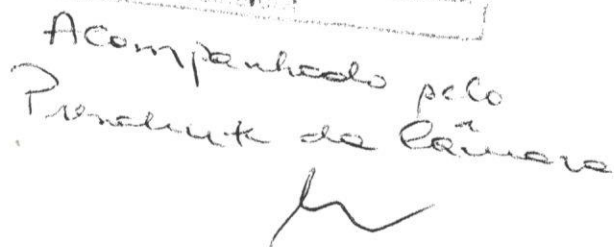 Acompanhado pelo
Presidente da Câmara